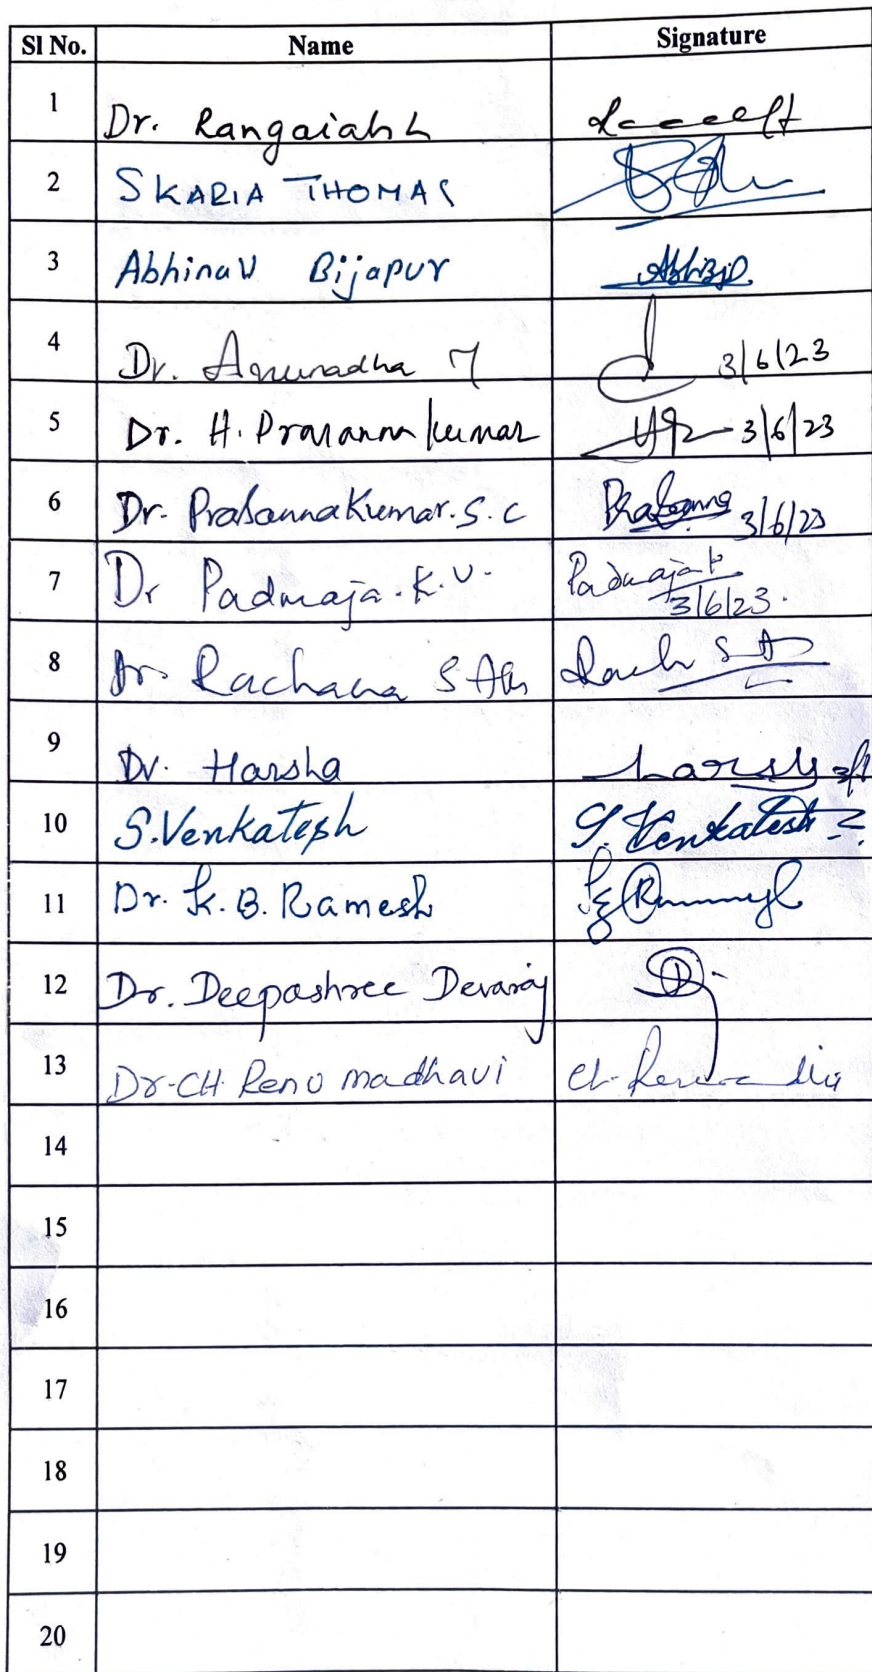 Sl No. Name Signature
1 Dr. Rangaiah L
2 SKARIA THOMAS
3 Abhinav Bijapur
4 Dr. Anuradha 3/6/23
5 Dr. H. Prasanna Kumar 3/6/23
6 Dr. Prasanna Kumar. S. C Prasanna 3/6/23
7 Dr Padmaja. K. V. Padmaja K
3/6/23.
8 Dr Rachana S
9 Dr. Harsha Harsha
10 S. Venkatesh S. Venkatesh
11 Dr. K. B. Ramesh
12 Dr. Deepashree Devaraj
13 Dr. CH. Renu madhavi
14
15
16
17
18
19
20